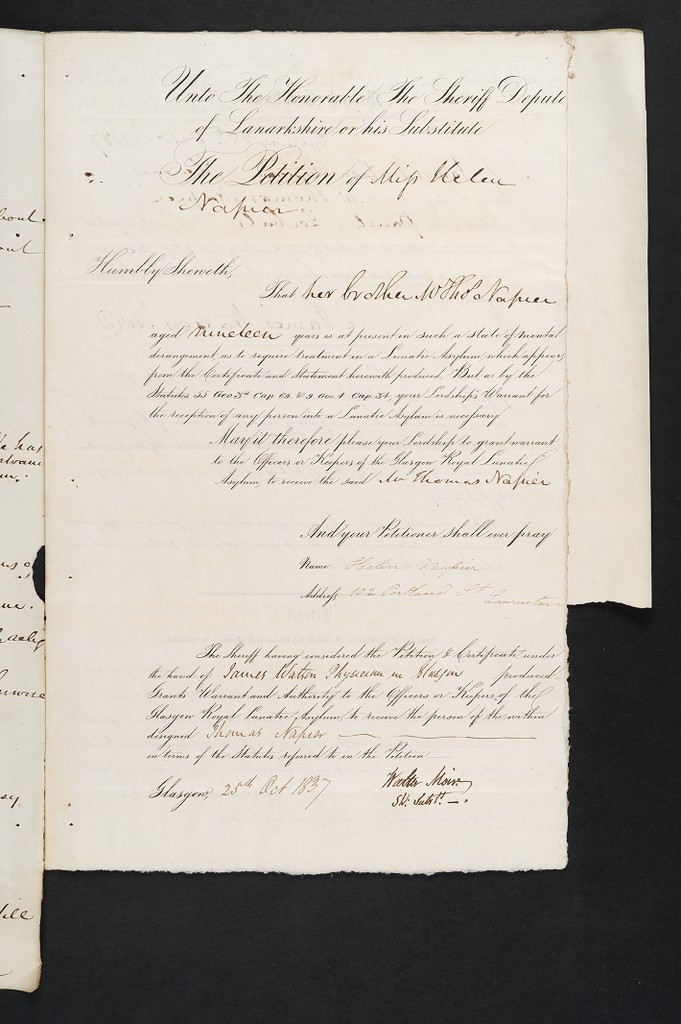 Unto The Honorable The Sheriff Depute
of Lanarkshire or his Substitute
The Petition of Miss Helen
Napier
Humbly Sheweth,
That her brother Mr Thos Napier
aged nineteen years is at present in such a state of mental
derangement as to require treatment in a Lunatic Asylum which appears
from the Certificate and Statement herewith produced, But as by the
Statutes 55 Geo 3d Cap. 69. & 9 Geo. 4 Cap. 34, your Lordship's Warrant for
the reception of any person into a Lunatic Asylum is necessary
May it therefore please your Lordship to grant warrant
to the Officers or Keepers of the Glasgow Royal Lunatic
Asylum, to receive the said Mr Thomas Napier
And your Petitioner shall ever pray
Name Helen Napier
Address 102 Portland St
Laurieston
The Sheriff having considered the Petition & Certificate under
the hand of James Watson Physician in Glasgow produced
Grants Warrant and Authority to the Officers or Keepers of the
Glasgow Royal Lunatic Asylum, to receive the person of the within
designed Thomas Napier
in terms of the Statutes referred to in the Petition
Glasgow, 25th Oct 1837
Walter Moir
Sh. Subst.